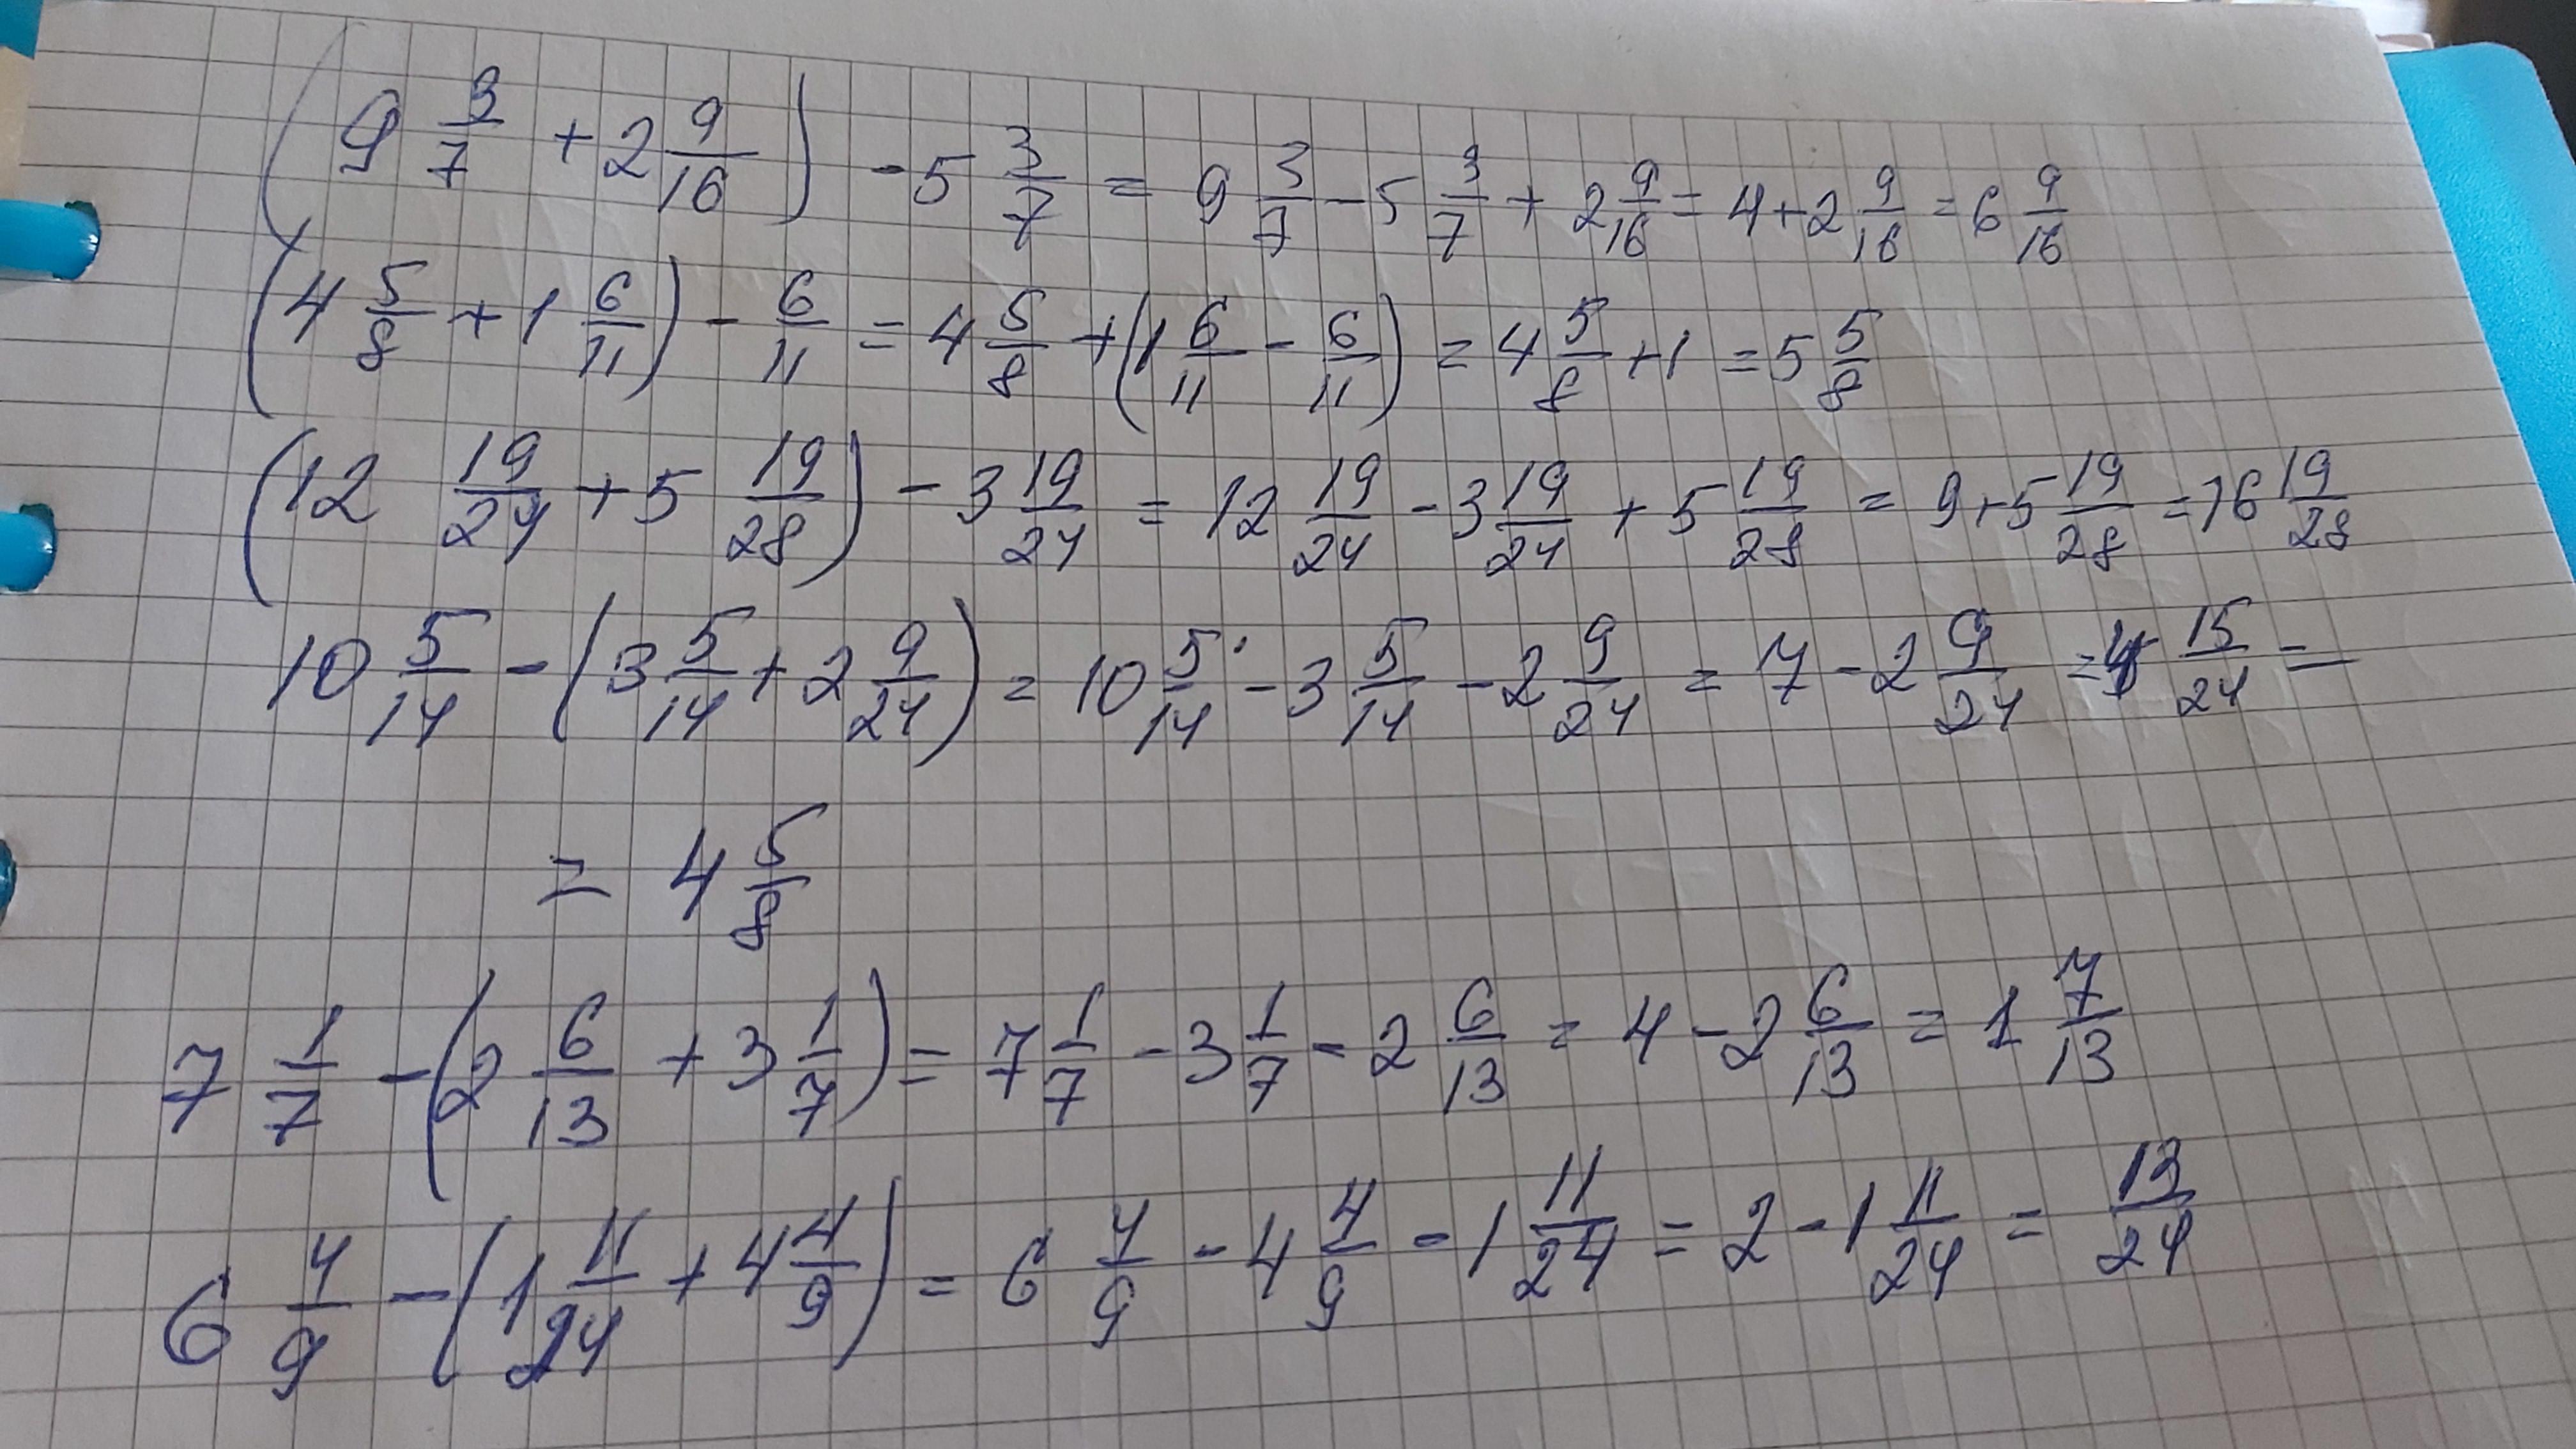 (9 3/7 + 2 9/16) - 5 3/7 = 9 3/7 - 5 3/7 + 2 9/16 = 4 + 2 9/16 = 6 9/16
(4 5/8 + 1 6/11) - 6/11 = 4 5/8 + (1 6/11 - 6/11) = 4 5/8 + 1 = 5 5/8
(12 19/24 + 5 19/28) - 3 19/24 = 12 19/24 - 3 19/24 + 5 19/28 = 9 + 5 19/28 = 16 19/28
10 5/14 - (3 5/14 + 2 9/24) = 10 5/14 - 3 5/14 - 2 9/24 = 7 - 2 9/24 = 4 15/24 =
= 4 5/8
7 1/7 - (2 6/13 + 3 1/7) = 7 1/7 - 3 1/7 - 2 6/13 = 4 - 2 6/13 = 1 7/13
6 4/9 - (1 11/24 + 4 4/9) = 6 4/9 - 4 4/9 - 1 11/24 = 2 - 1 11/24 = 13/24